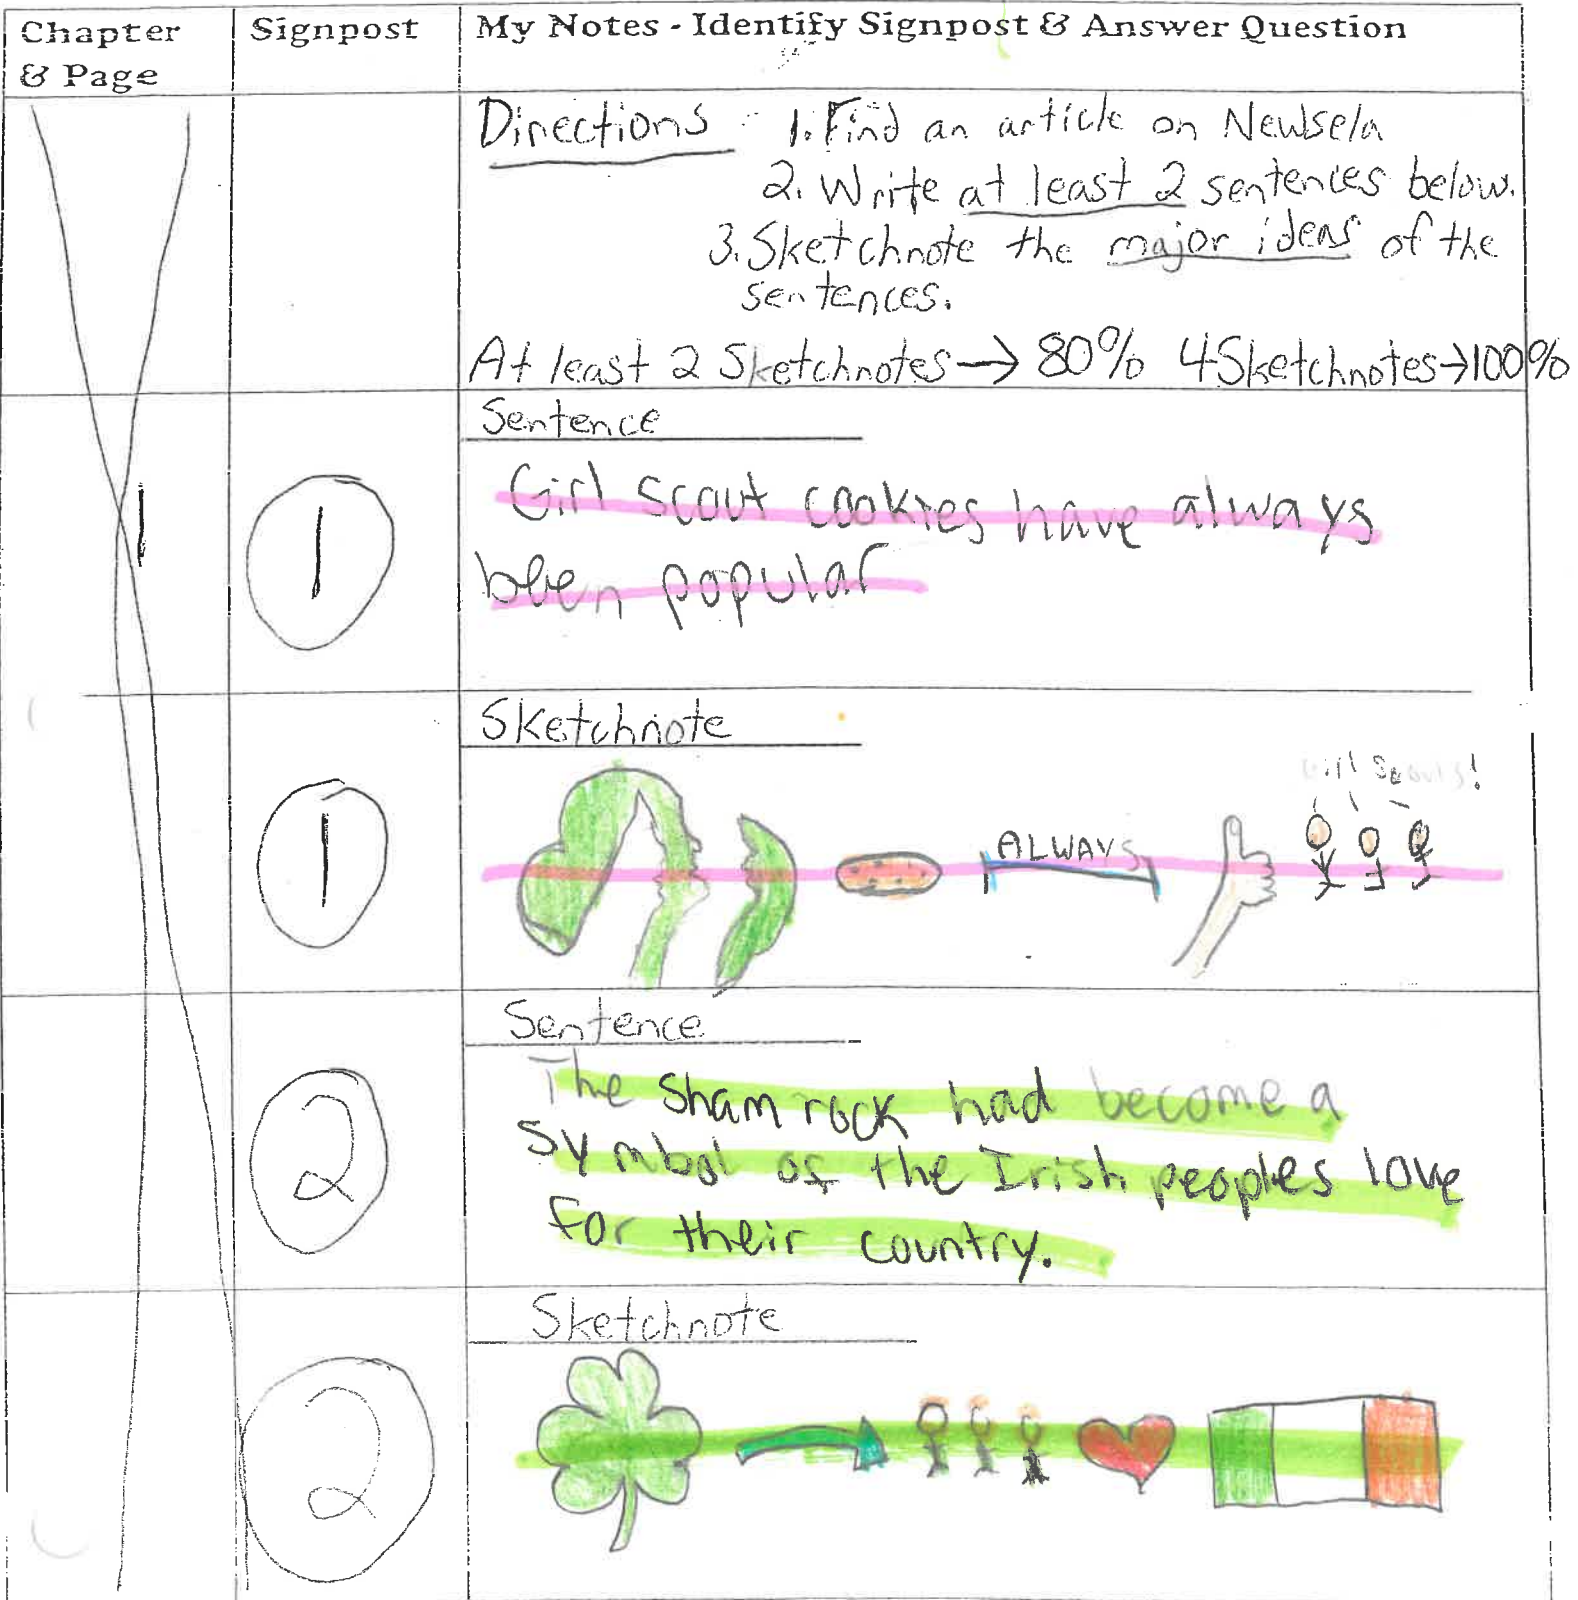 Chapter & Page
Signpost
My Notes - Identify Signpost & Answer Question
Directions 1. Find an article on Newsela
2. Write at least 2 sentences below.
3. Sketchnote the major ideas of the
sentences.
At least 2 Sketchnotes → 80% 4 Sketchnotes → 100%
Sentence
1
1
Girl scout cookies have always
been popular
Sketchnote
Girl Scouts!
1
ALWAYS
Sentence
2
The Shamrock had become a
symbol of the Irish peoples love
for their country.
Sketchnote
2